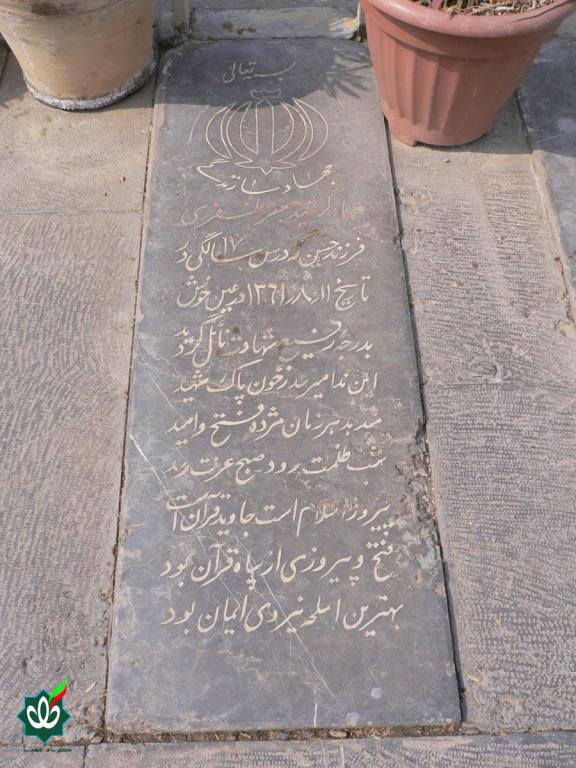 بسمه تعالی
جهاد سازندگی
جهادگر شهید جعفر مظفری
فرزند حسین که در سن ۱۷ سالگی در
تاریخ ۱۳۶۱/۸/۱۱ در عین خوش
بدرجه رفیع شهادت نائل گردید
این ندا میرسد ز خون پاک شهید
میدهد هر زمان مژده فتح و امید
شب ظلمت رود صبح عزت رسد
پیروز اسلام است جاوید قرآن است
فتح و پیروزی از سپاه قرآن بود
بهترین اسلحه نیروی ایمان بود